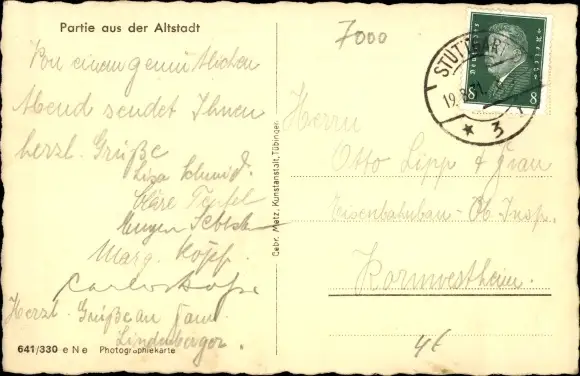 Partie aus der Altstadt
7000
Von einem gemütlichen
Abend sendet Ihnen
herzl. Grüße
Lisa Schmid.
Kläre Topfel
Eugen
Marg. Kopf.
Herzl. Grüße an Fam.
Lindenberger.
641/330 e N e Photographiekarte
Gebr. Metz, Kunstanstalt, Tübingen
Deutsches Reich
8 8
STUTTGART
19.8.31.
★ 3
Herrn
Otto Lipp & Frau
Eisenbahnbau-Ob. Insp.
Kornwestheim.
4t